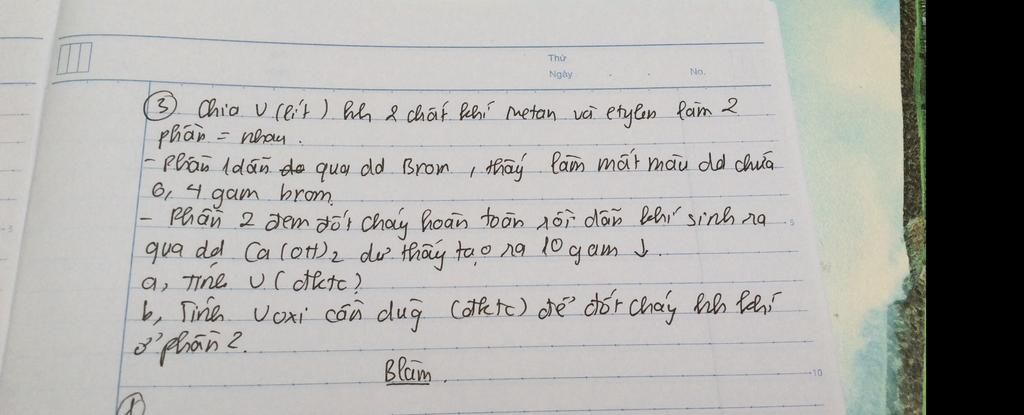 Thứ
Ngày
No.
③ Chia V (lít) hh 2 chất khí metan và etylen làm 2
phần = nhau.
- Phần 1 dẫn qua dd Brom, thấy làm mất màu dd chứa
6,4 gam brom.
- Phần 2 đem đốt cháy hoàn toàn rồi dẫn khí sinh ra
qua dd Ca(OH)2 dư thấy tạo ra 10 gam ↓.
a, Tính V (đktc)?
b, Tính Voxi cần dùg (đktc) để đốt cháy hh khí
ở phần 2.
Blàm.
10